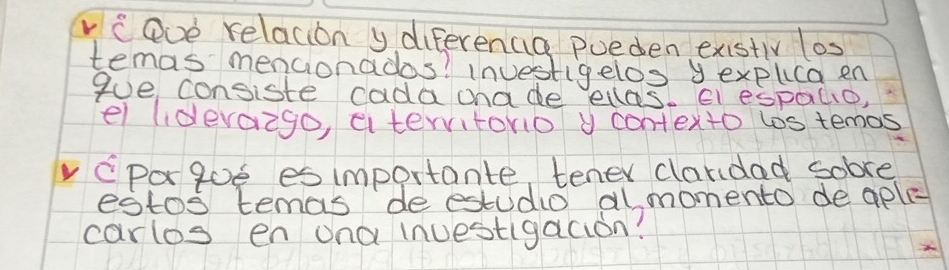 ¿Qué relación y diferencia pueden existir los
temas mencionados? investigelos y explica en
que consiste cada una de ellas. El espacio,
el liderazgo, el territorio y contexto los temas
¿Por qué es importante tener claridad sobre
estos temas de estudio al momento de apli-
carlos en una investigación?